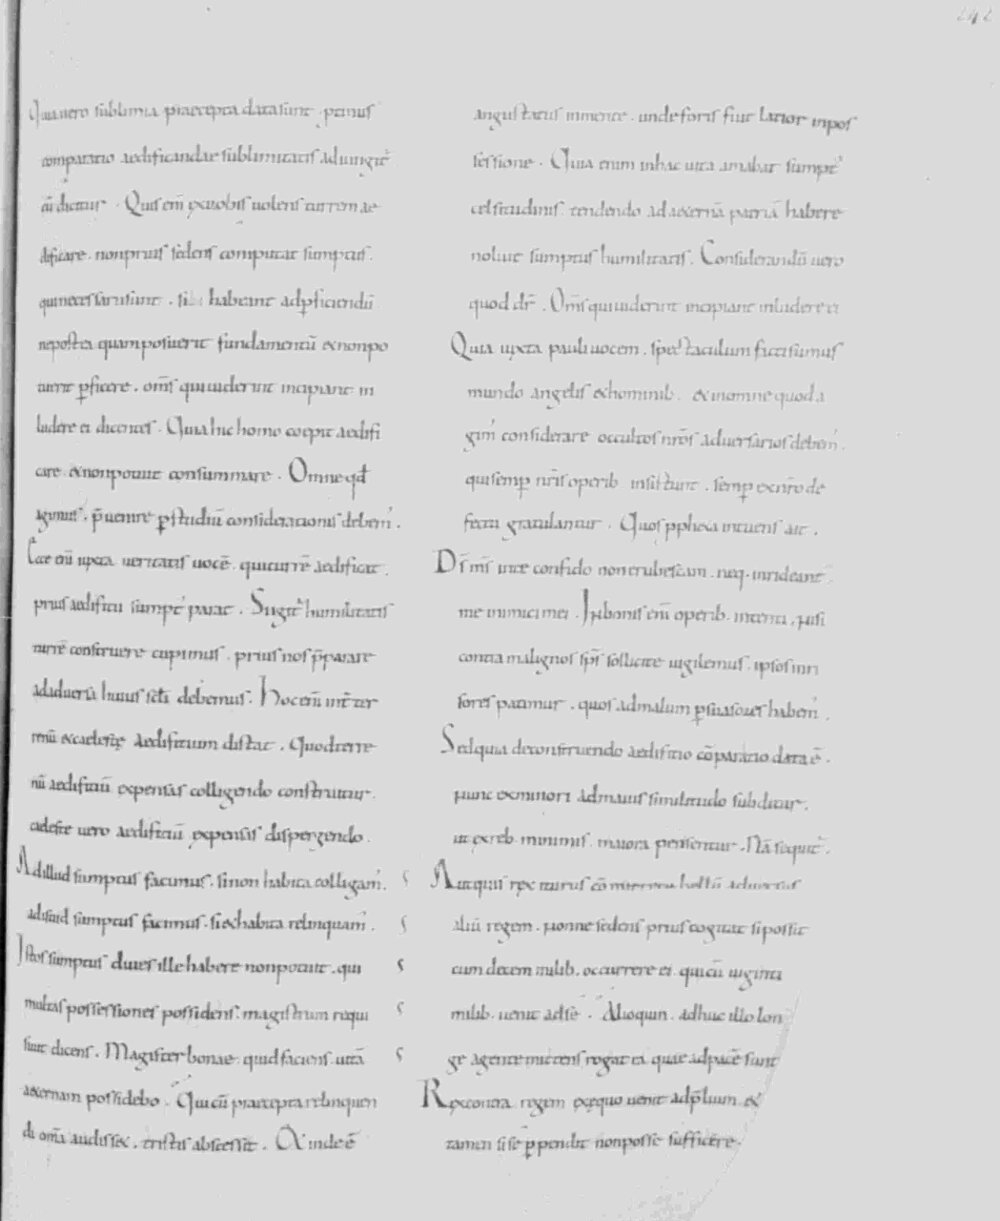 242
Quia uero sublimia praecepta data sunt. protinus
comparatio aedificandae sublimitatis adiungit᷑
cū dicitur. Quis enī ex uobis uolens turrem ae
dificare. non prius sedens computat sumptus.
qui necessarii sunt. si habeat ad ꝑficiendū
ne postea quam posuerit fundamentū & non po
tuerit ꝑficere. om̄s qui uiderint incipiant in
ludere ei dicentes. Quia hic homo coepit aedifi
care & non potuit consummare. Omne qđ
agimus. p̄uenire ꝑ studiū considerationis debem᾽.
Ecce enī iuxta ueritatis uocē. qui turrē aedificat.
prius aedificii sumpt᾽ parat. Si igit᷑ humilitatis
turrē construere cupimus. prius nos p̄parare
ad aduersa huius sc̄li debemus. Hoc enī int̄ ter
renū & caeleste aedificium distat. Quod terre
nū aedificiū expensas colligendo construitur.
caeleste uero aedificiū expensas dispergendo.
Ad illud sumptus facimus. si non habita colligam᾽.
ad istud sumptus facimus. si & habita relinquam᾽.
Istos sumptus diues ille habere non potuit. qui
multas possessiones possidens. magistrum requi
siuit dicens. Magister bonae. quid faciens uitā
aeternam possidebo. Qui cū praecepta relinquen
di om̄ia audisset. tristis abscessit. & inde ē
angustatus in mente. unde foris fuit latior in pos
sessione. Quia enim in hac uita amabat sumpt᾽
celsitudinis. tendendo ad aeternā patriā habere
noluit sumptus humilitatis. Considerandū uero
quod dr̄. Om̄s qui uiderint incipiant inludere ei
Quia iuxta pauli uocem. spectaculum facti sumus
mundo angelis & hominib. & in omne quod a
gim᾽ considerare occultos nr̄os aduersarios debem᾽.
qui semꝑ nr̄is operib insistunt. semꝑ ex nr̄o de
fectu gratulantur. Quos ppheta intuens ait.
Ds̄ ms̄ in te confido non erubescam. neq. inrideant
me inimici mei. In bonis enī operib. intenti. nisi
contra malignos sp̄s sollicite uigilemus. ipsos inri
sores patimur. quos ad malum ꝑsuasores habem᾽.
Sed quia de construendo aedificio cōparatio data ē.
nunc ex minori ad maius similitudo subditur.
ut ex reb. minimis. maiora pensentur. Nā sequit᷑.
Aut quis rex iturus cōmittere bellū aduersus
aliū regem. nonne sedens prius cogitat si possit
cum decem milib. occurrere ei. qui cū uiginti
milib. uenit ad se. Alioquin. adhuc illo lon
ge agente mittens rogat ea quae ad pacē sunt
Rex contra regem ex equo uenit ad p̄lium. &
tamen si se ꝑpendit non posse sufficere.